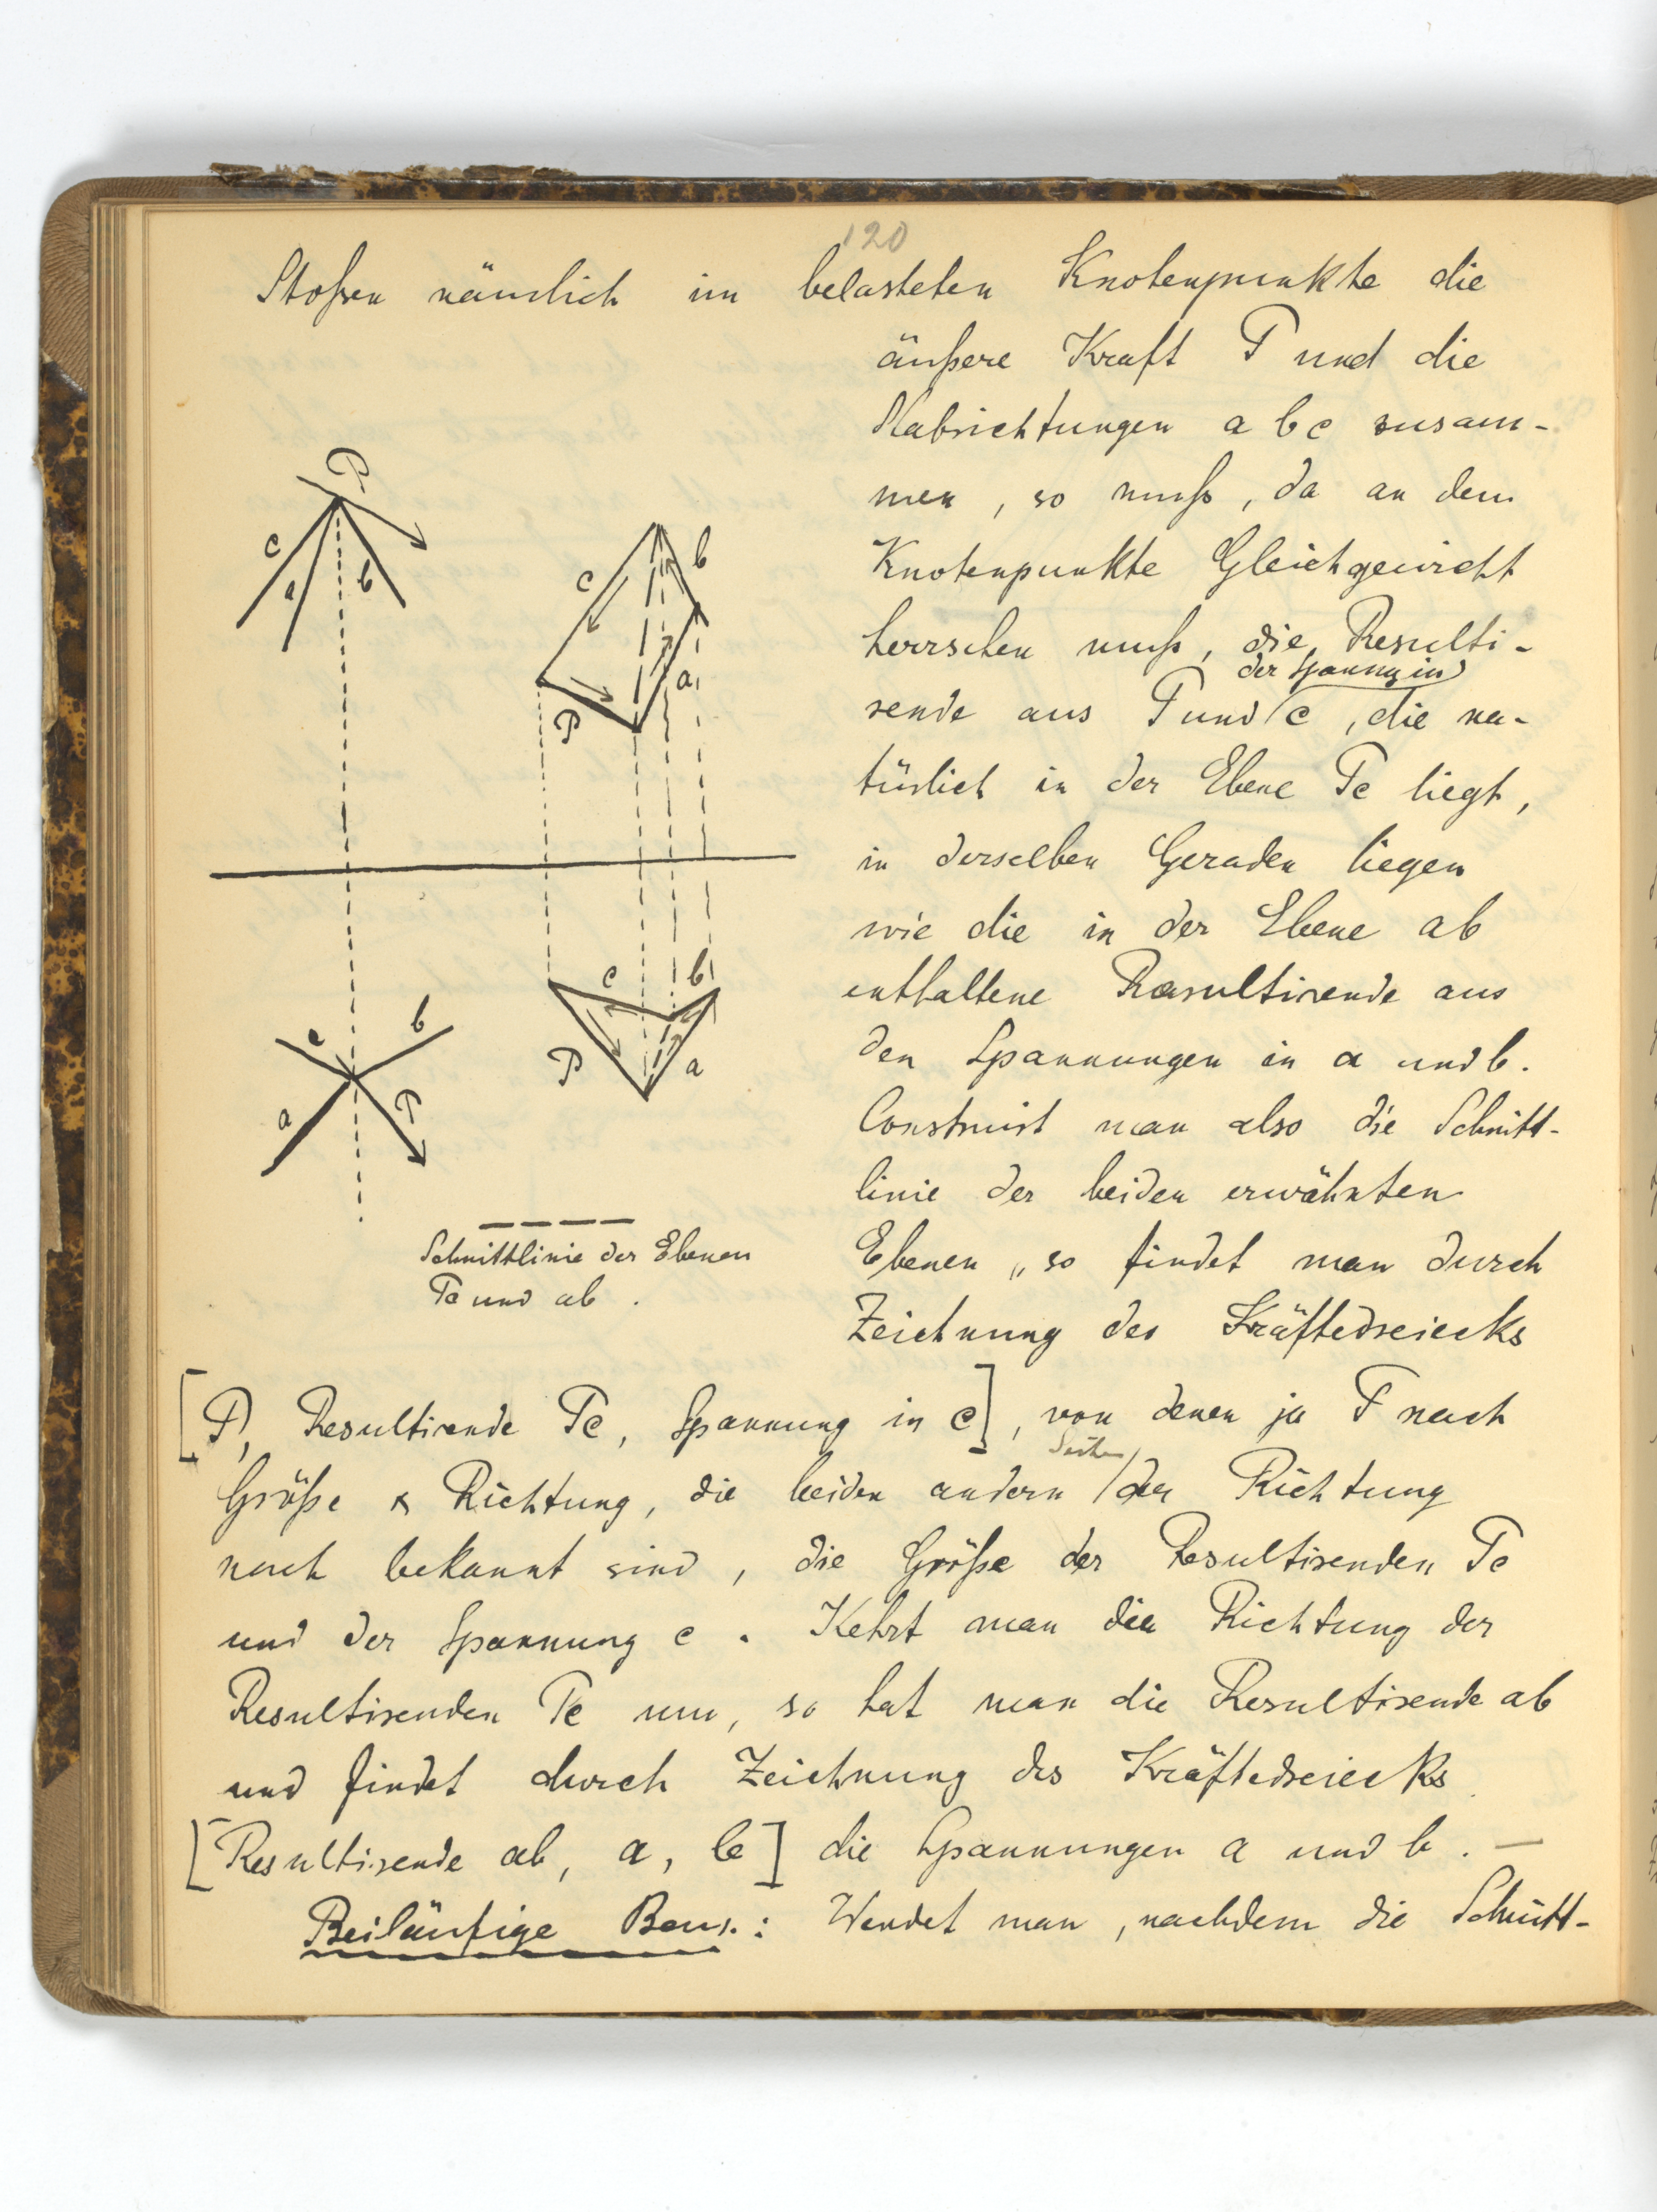 120
Stoßen nämlich im belasteten Knotenpunkte die
äußere Kraft P und die
Stabrichtungen a b c zusam-
men, so muß, da an dem
Knotenpunkte Gleichgewicht
herrschen muß, die Resulti-
der Spannung in
rende aus P und c, die na-
türlich in der Ebene Pc liegt,
in derselben Geraden liegen
wie die in der Ebene ab
enthaltene Resultirende aus
den Spannungen in a und b.
Construirt man also die Schnitt-
linie der beiden erwähnten
Ebenen, so findet man durch
Zeichnung des Kräftedreiecks
P
c
a
b
c
b
a
P
c
b
P
a
c
b
a
P
Schnittlinie der Ebenen
Pc und ab.
[P, Resultirende Pc, Spannung in c], von denen ja P nach
Seiten
Größe & Richtung, die beiden andern der Richtung
nach bekannt sind, die Größe der Resultirenden Pc
und der Spannung c. Kehrt man die Richtung der
Resultirenden Pc um, so hat man die Resultirende ab
und findet durch Zeichnung des Kräftedreiecks
[Resultirende ab, a, b] die Spannungen a und b. —
Beiläufige Bem.: Wendet man, nachdem die Schnitt-